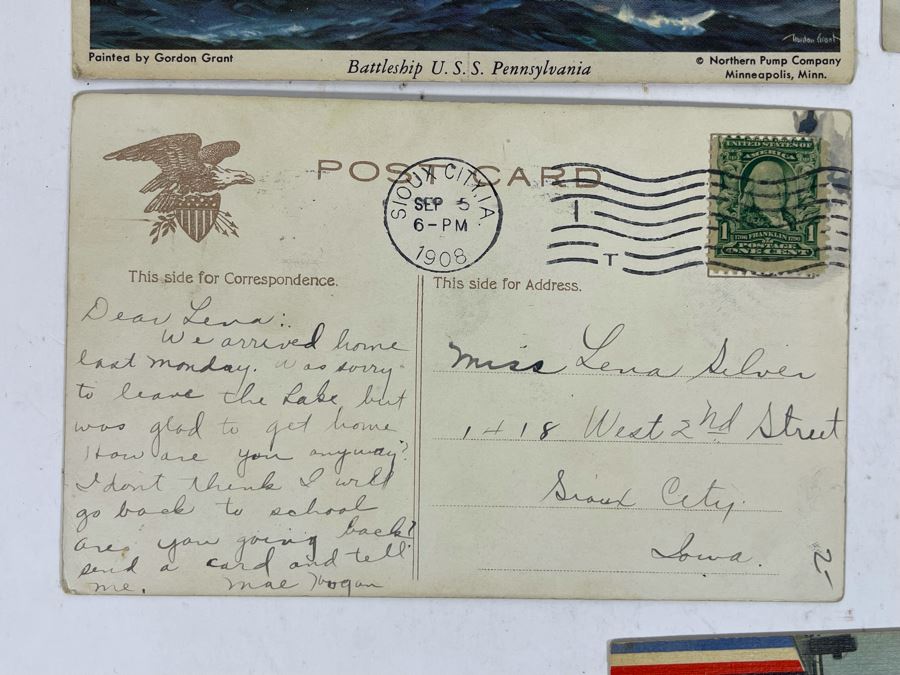 Gordon Grant
Painted by Gordon Grant
Battleship U. S. S. Pennsylvania
© Northern Pump Company
Minneapolis, Minn.
POST CARD
SIOUX CITY, IA.
SEP 5
6-PM
1908
T
UNITED STATES OF
AMERICA
1 1
1706 FRANKLIN 1790
POSTAGE
ONE CENT
This side for Correspondence.
This side for Address.
Dear Lena:
We arrived home
last Monday. Was sorry
to leave the Lake but
was glad to get home
How are you anyway?
I dont think I will
go back to school
are you going back?
send a card and tell
me. Mae Hogan
Miss Lena Silver
1418 West 2nd Street
Sioux City.
Iowa.
2-